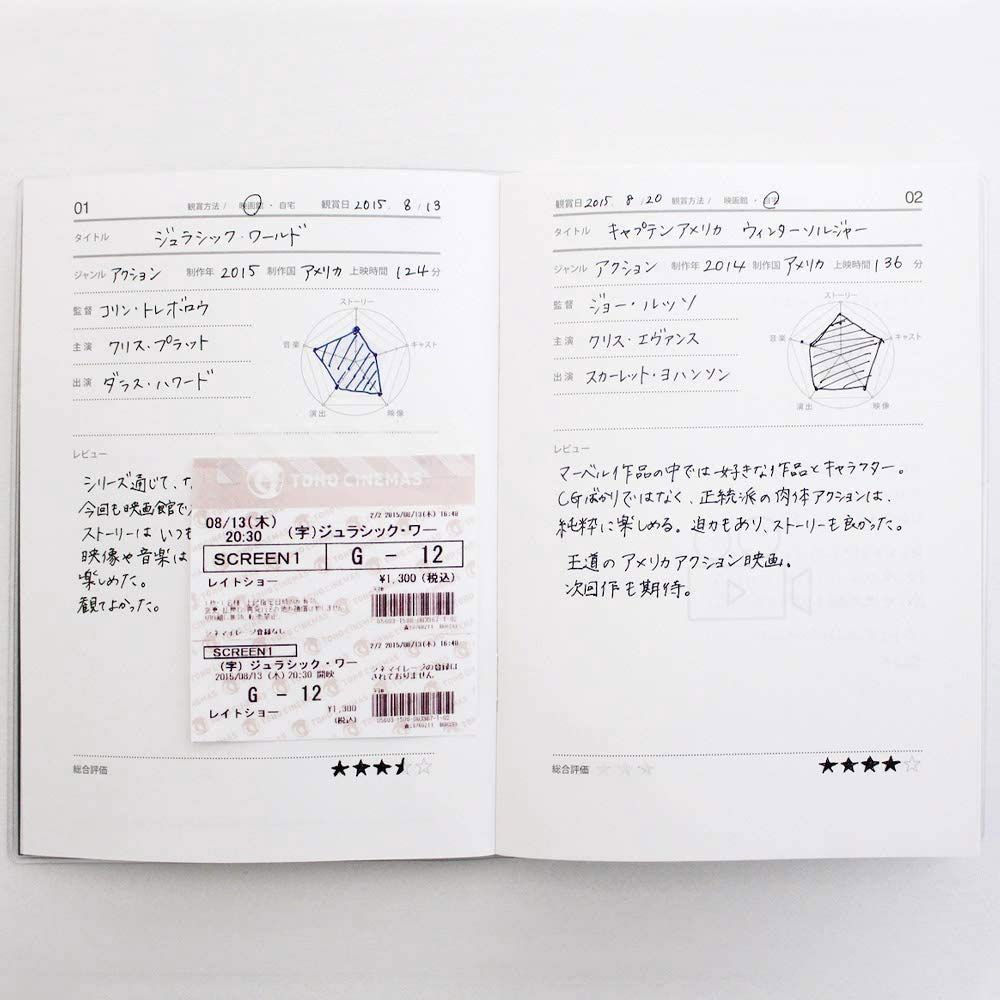 01
観賞方法 / 映画館・自宅 観賞日 2015. 8 / 13
タイトル ジュラシック・ワールド
ジャンル アクション 制作年 2015 制作国 アメリカ 上映時間 124 分
監督 コリン・トレボロウ
主演 クリス・プラット
出演 ダラス・ハワード
ストーリー
音楽
キャスト
演出
映像
レビュー
シリーズ通じて、
今回も映画館で
ストーリーは いつも
映像や音楽は
楽しめた。
観てよかった。
TOHO CINEMAS
2/2 2015/08/13(木) 16:40
08/13(木)
20:30 (字)ジュラシック・ワー
SCREEN1 G - 12
レイトショー ¥1,300 (税込)
シネマイレージ登録なし
2/2 2015/08/13(木) 16:40
SCREEN1
(字) ジュラシック・ワー
2015/08/13 (木) 20:30 開映
シネマイレージの登録は
されておりません
G - 12
レイトショー ¥1,300
(税込)
総合評価 ★★★☆☆
観賞日 2015. 8 / 20 観賞方法 / 映画館・自宅 02
タイトル キャプテンアメリカ ウィンターソルジャー
ジャンル アクション 制作年 2014 制作国 アメリカ 上映時間 136 分
監督 ジョー・ルッソ
主演 クリス・エヴァンス
出演 スカーレット・ヨハンソン
ストーリー
音楽
キャスト
演出
映像
レビュー
マーベル作品の中では一番好きな作品とキャラクター。
CGばかりではなく、正統派の肉体アクションは、
純粋に楽しめる。迫力もあり、ストーリーも良かった。
王道のアメリカアクション映画。
次回作も期待。
総合評価 ★★★★☆